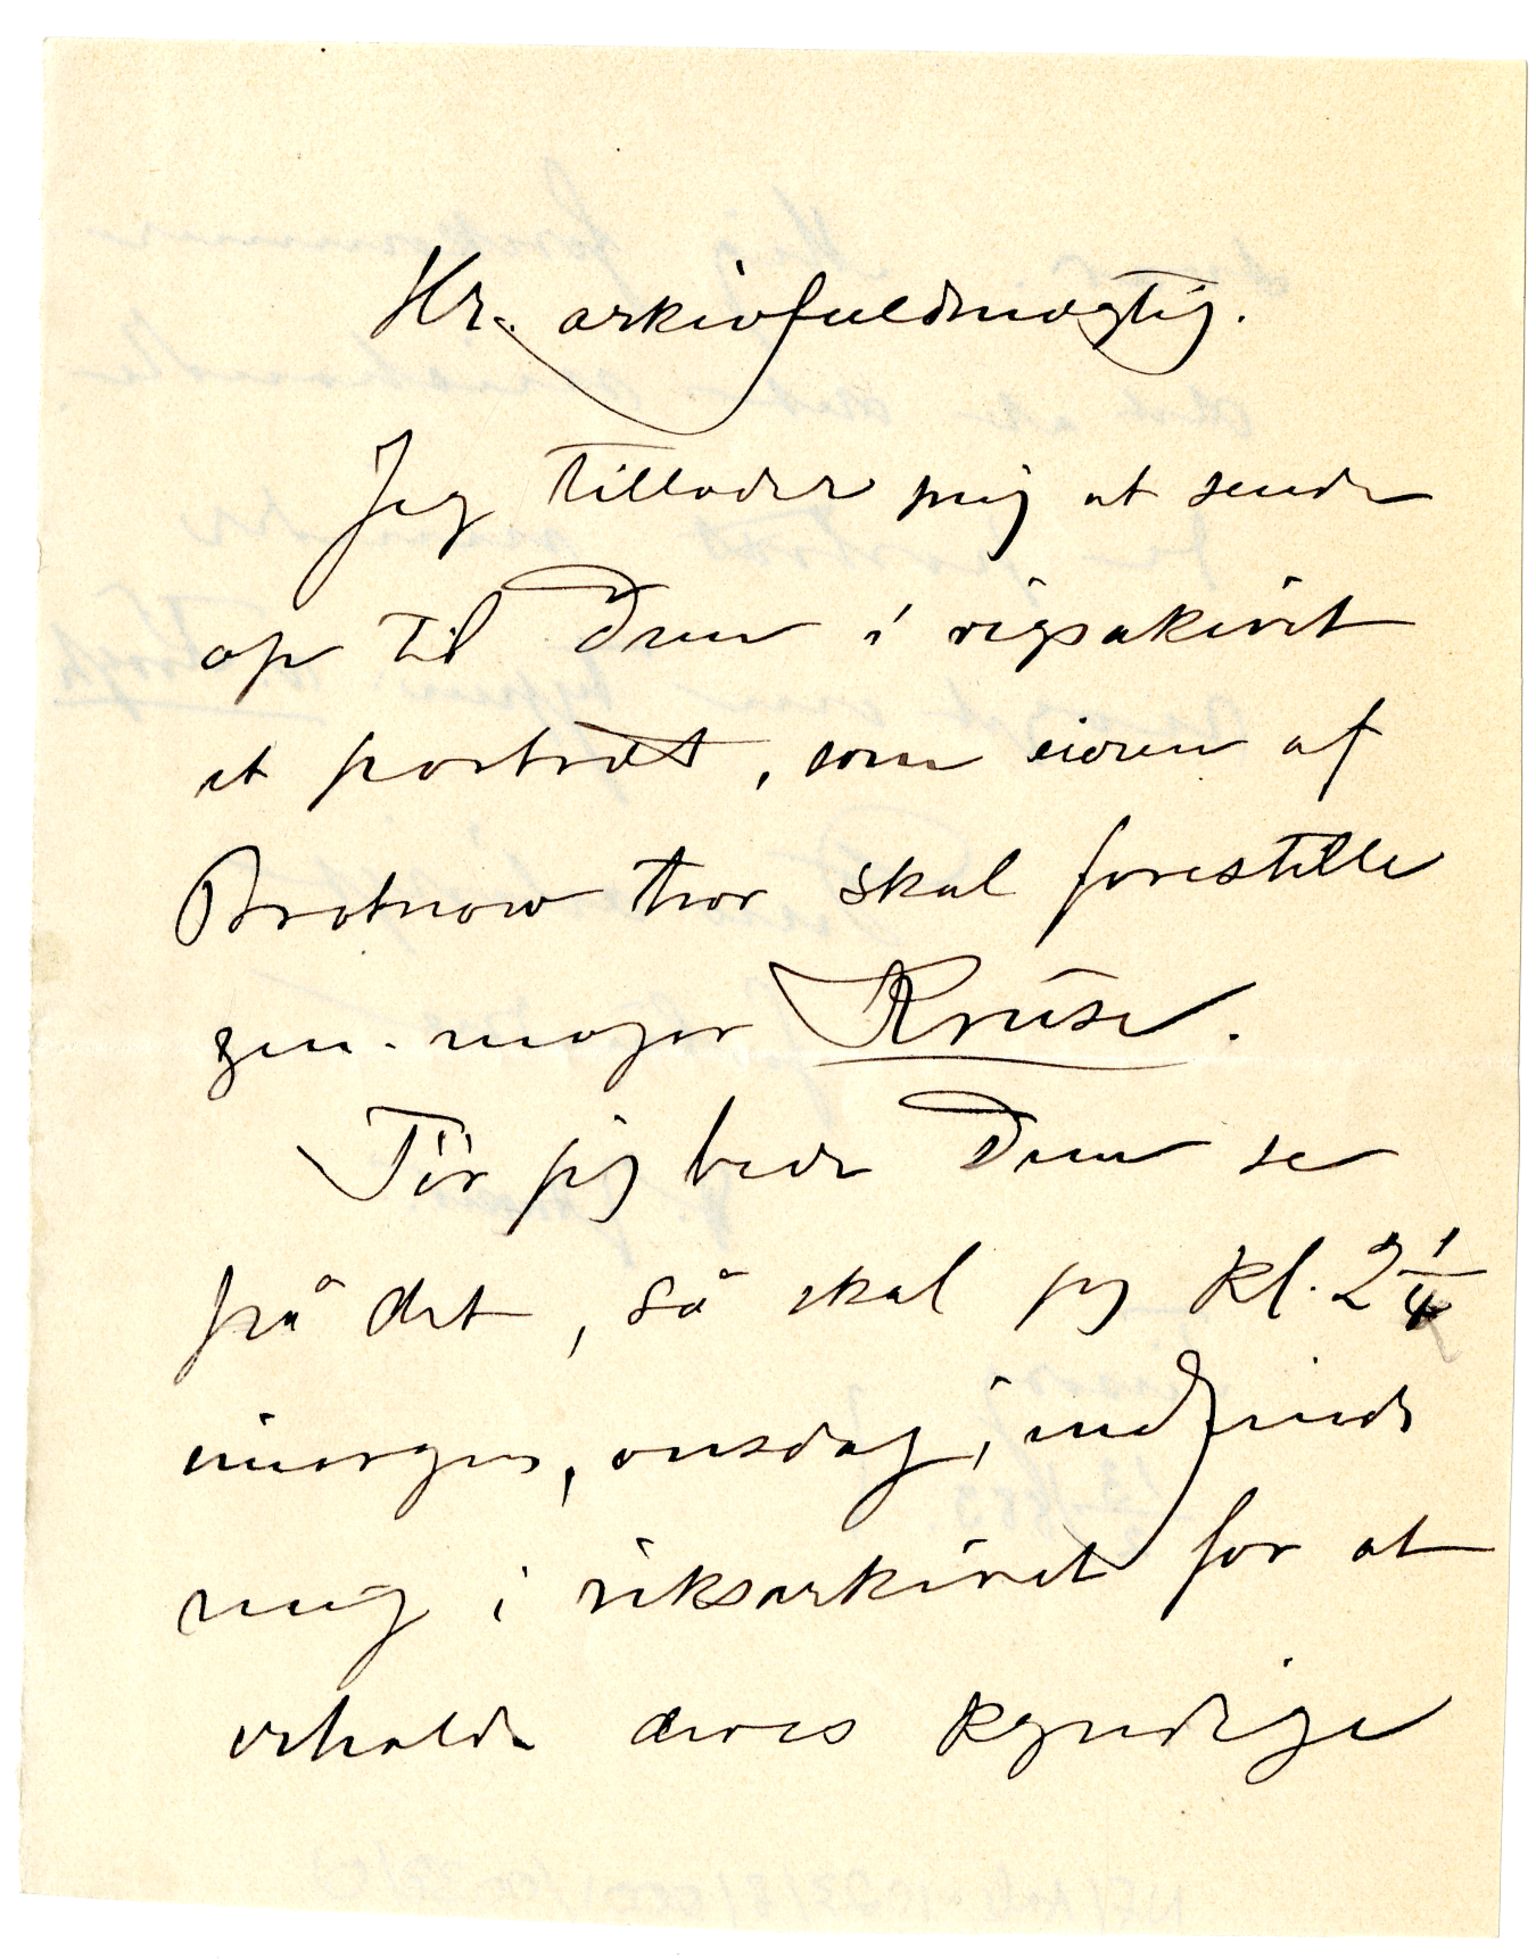 Hr. arkivfuldmægtig.
Jeg tillader mig at sende
op til Dem i rigsakivet
et portræt, som eieren af
Brotnow tror skal forestille
gen. major Krüse.
Tör jeg bede Dem se
på det, så skal jeg kl. 2 1/4
imorgen, onsdag, indfinde
mig i riksarkivet for at
erholde deres kyndige